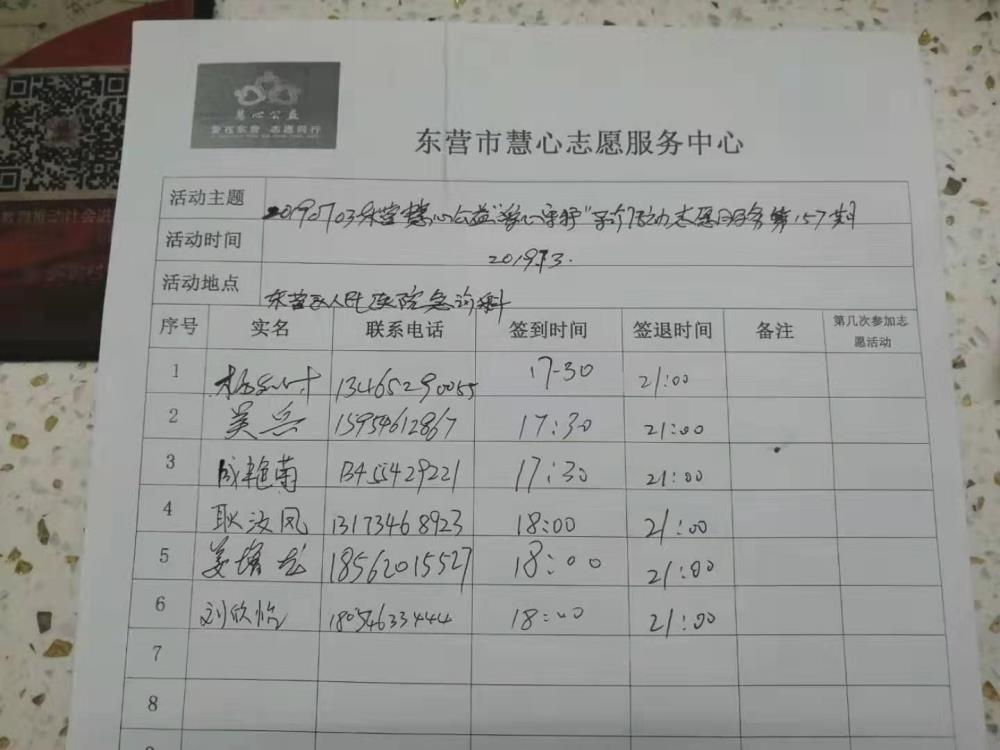 慧心公益
爱在东营 志愿同行
东营市慧心志愿服务中心
活动主题 20190703东营慧心公益"爱心守护"系列活动志愿服务第157期
活动时间 2019.7.3.
活动地点 东营区人民医院急诊科
序号 实名 联系电话 签到时间 签退时间 备注 第几次参加志愿活动
1 13465290055 17-30 21:00
2 吴兵 15954612867 17:30 21:00
3 成艳菊 13455429221 17:30 21:00
4 耿汝凤 13173468923 18:00 21:00
5 姜 18562015527 18:00 21:00
6 刘欣怡 18054633444 18:00 21:00
7
8